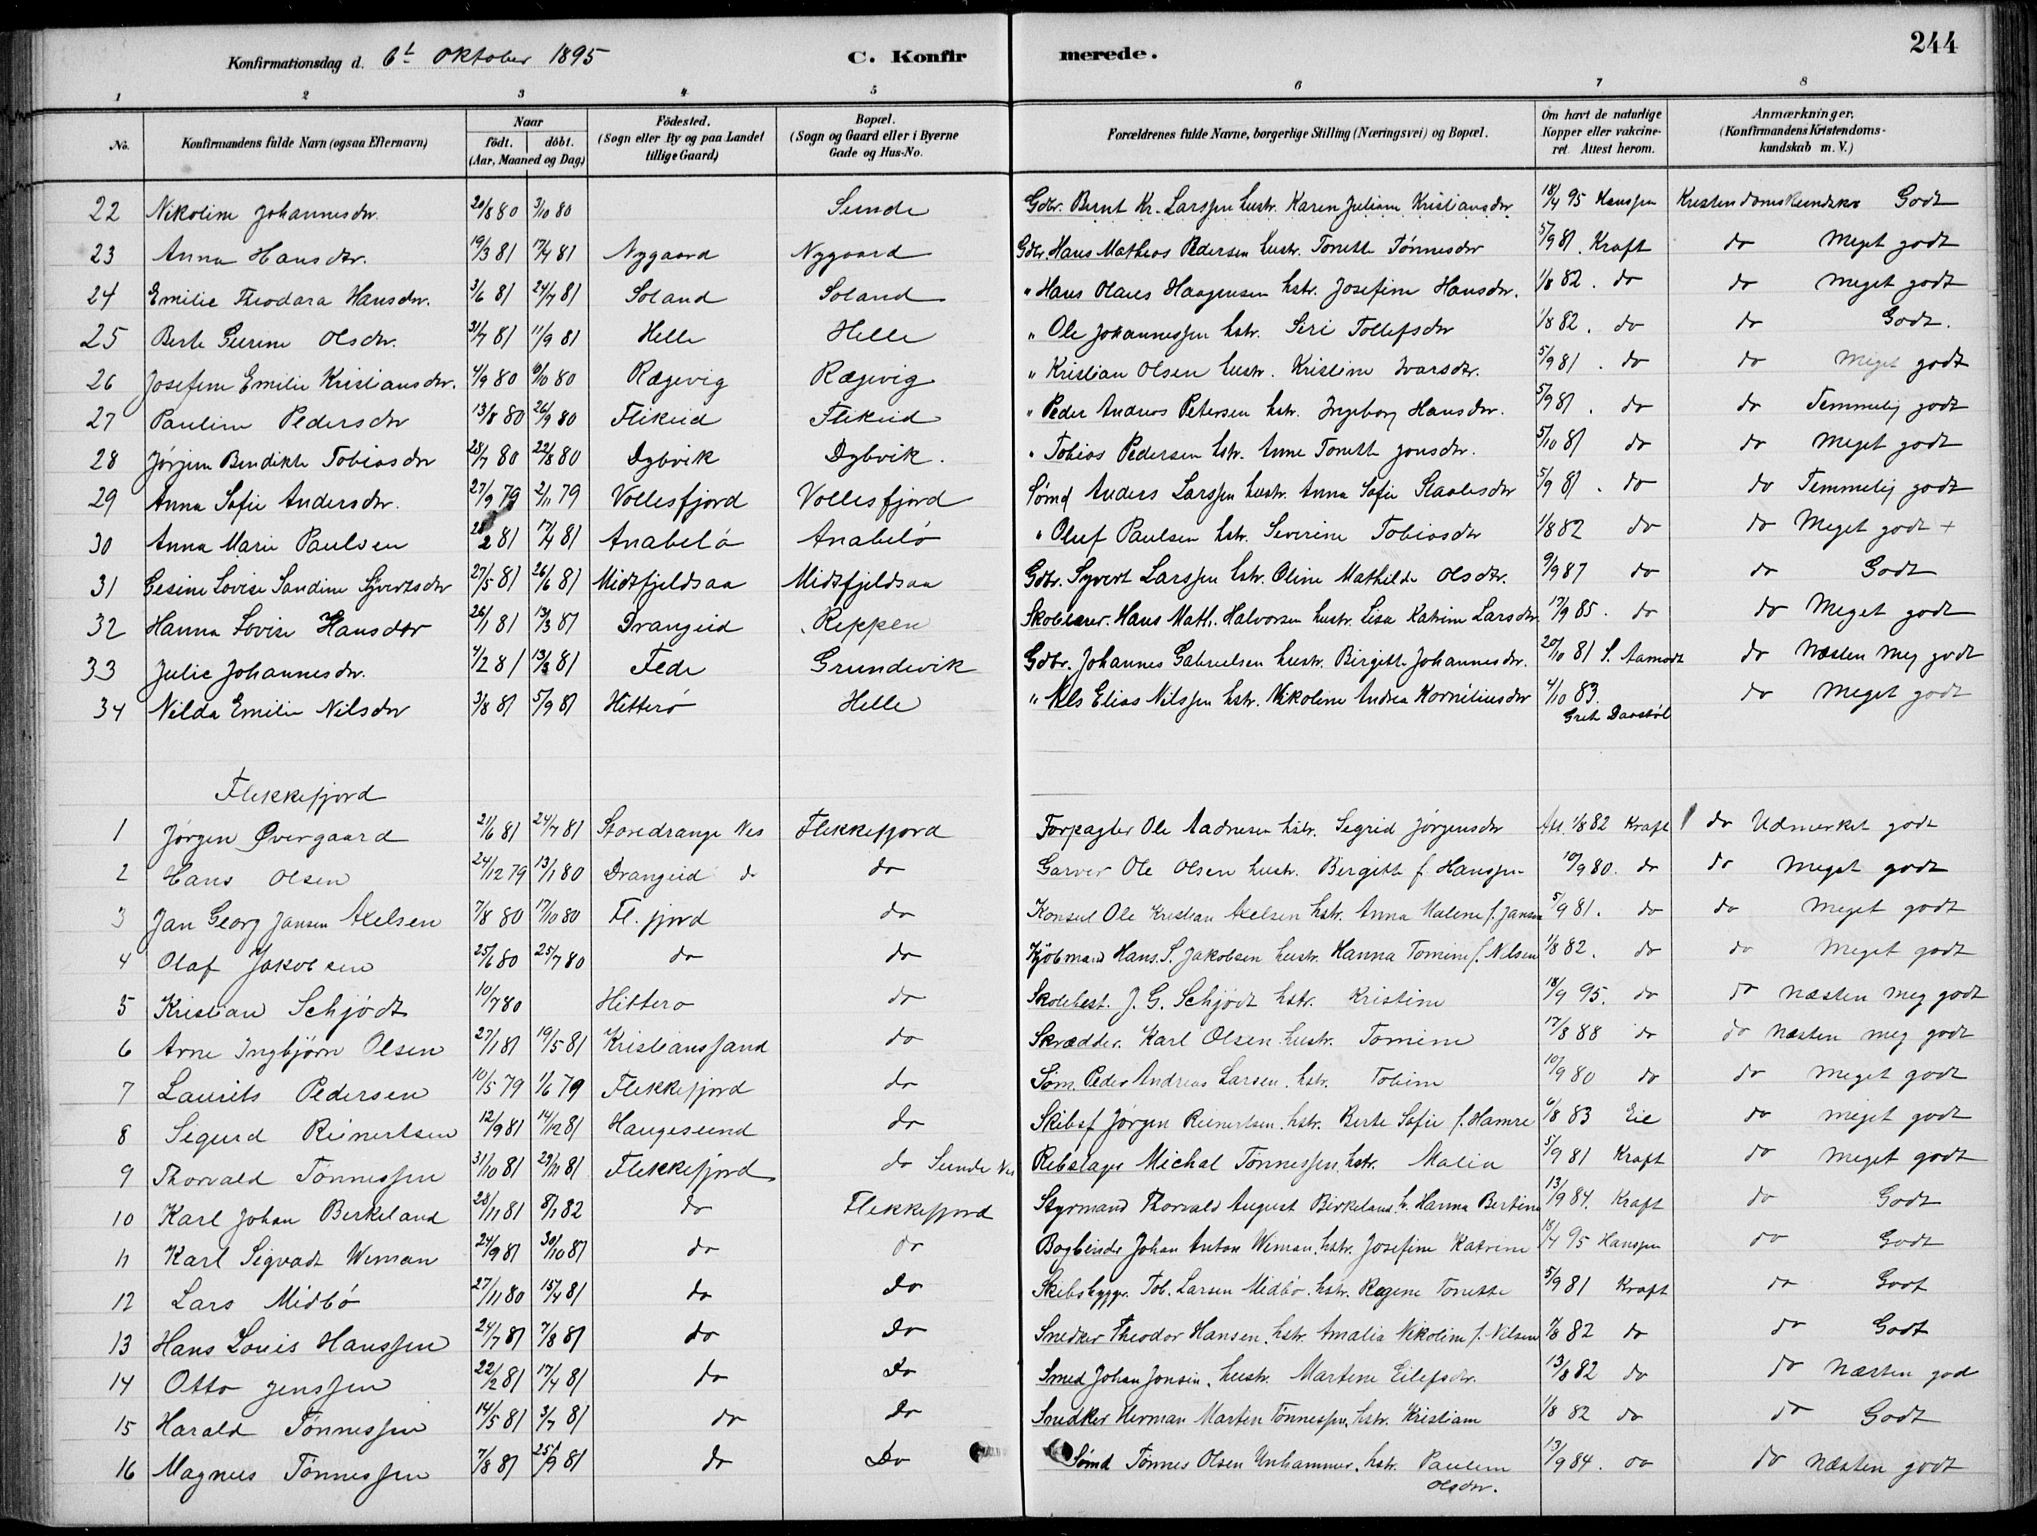 244
Konfirmationsdag d. 6t Oktober 1895 C. Konfirmerede.
1 2 3 4 5 6 7 8
No. Konfirmandens fulde Navn (ogsaa Efternavn) Naar født. døbt. (Aar, Maaned og Dag) Fødested. (Sogn eller By og paa Landet tillige Gaard) Bopæl. (Sogn og Gaard eller i Byerne Gade og Hus-No. Forældrenes fulde Navne, borgerlige Stilling (Næringsvei) og Bopæl. Om havt de naturlige Kopper eller vakcineret. Attest herom. Anmærkninger. (Konfirmandens Kristendomskundskab m. V.)
22 Nikoline Johannesdtr. 20/8 80 3/10 80 Sunde Gdbr. Bernt Kr. Larssen hustr. Karen Juliane Kristiansdtr. 18/4 95 Hanssen Kristendomskundskab Godt
23 Anna Hansdtr. 19/3 81 17/4 81 Nygaard Nygaard Gdbr. Hans Mathias Pedersen hustr. Tonette Tønnesdtr 5/9 81. Kraft do Meget godt
24 Emilie Theodora Hansdtr. 3/6 81 24/7 81 Soland Soland " Hans Olaus Haagensen hstr. Josefine Hansdtr. 1/8 82. do do Meget godt
25 Berte Gurine Olsdtr. 31/7 81 11/9 81 Helle Helle " Ole Johannessen hstr. Siri Tollefsdtr 1/8 82. do do Godt.
26 Josefine Emilie Kristiansdtr. 4/9 80 6/10 80 Rægevig Rægevig " Kristian Olsen hustr. Kristine Ivarsdtr. 5/9 81. do do Meget godt
27 Pauline Pedersdtr 13/8 80 26/9 80 Flikeid Flikeid " Peder Andreas Petersen hstr. Ingeborg Hansdtr. 5/9 81. do do Temmelig godt
28 Jørgine Bendikte Tobiasdtr 28/7 80 22/8 80 Dybvik Dybvik. " Tobias Pedersen hstr. Anne Tonette Jonsdtr. 5/10 81 do do Meget godt
29 Anna Sofie Andersdtr. 27/9 79 2/11 79 Vollesfjord Vollesfjord Sømd Anders Larssen hustr. Anna Sofie Staalesdtr 5/9 81. do do Temmelig godt
30 Anna Marie Paulsen 28/2 81 17/4 81 Anabelø Anabelø " Oluf Paulsen hstr. Severine Tobiasdtr 1/8 82 do do Meget godt +
31 Gesine Lovise Sandine Syvertsdtr 27/5 81 26/6 81 Midtfjeldsaa Midtfjeldsaa Gdbr. Syvert Larssen hstr. Oline Mathilde Olsdtr. 9/9 87 do do Godt
32 Hanna Lovise Hansdtr 26/1 81 13/3 81 Drangeid Reppen Skolelærer. Hans Math. Halvorsen hustr. Lisa Katrine Larsdtr. 17/9 85. do do Meget godt
33 Julie Johannesdtr. 4/2 81 13/3 81 Fede Grundevik Gdbr. Johannes Gabrielsen hustr. Birgitte Johannesdtr. 20/10 81 S. Aamodt do Næsten meg godt
34 Nilda Emilie Nilsdtr 3/8 81 5/9 81 Hitterø Helle " Nils Elias Nilssen hstr. Nikoline Andrea Kornéliusdtr 4/10 83. do Meget godt
Flekkefjord
1 Jørgen Øvergaard 21/6 81 24/7 81 Storedrange Nes Flekkefjord Forpagter Ole Aadnesen hstr. Sigrid Jørgensdtr Att. 1/8 82 Kraft do Udmerket godt
2 Hans Olsen 24/12 79 13/1 80 Drangeid do do Garver Ole Olsen hustr. Birgitte f. Hanssen 10/9 80. do do Meget godt
3 Jan Georg Jansen Axelsen 7/8 80 17/10 80 Fl. fjord do Konsul Ole Kristian Axelsen hstr. Anna Malene f. Jansen 5/9 81. do do Meget godt
4 Olaf Jakobsen 25/6 80 25/7 80 do do Kjøbmand Hans. S. Jakobsen hustr. Hanna Tomine f. Nilsen 1/8 82. do do Meget godt
5 Kristian Schjødt 10/7 80 Hitterø do Skolebest. J. G. Schjødt hstr. Kristine 18/9 95. do do næsten meg godt
6 Arne Ingbjørn Olsen 27/1 81 19/5 81 Kristianssand do Skrædder. Karl Olsen hustr. Tomine 17/8 88 do do næsten meg godt
7 Laurits Pedersen 10/5 79 1/6 79 Flekkefjord do Søm. Peder Andreas Larsen. hstr. Tobine 10/9 80 do do Meget godt
8 Sigurd Reinertsen 12/9 81 14/12 81 Haugesund do Skibsf Jørgen Reinertsen. hstr. Berte Sofie f. Hamre 6/8 83 Eie do Meget godt
9 Thorvald Tønnessen 31/10 81 29/11 81 Flekkefjord do Sunde Nes Rebslager Michal Tønnessen. hstr. Malin 5/9 81 Kraft do Meget godt
10 Karl Johan Birkeland 28/11 81 8/1 82 do Flekkefjord Styrmand Thorvald August Birkeland. h. Hanna Bertine 13/9 84. Kraft do Godt
11 Karl Sigvadt Weman 24/9 81 30/10 81 do do Bogbinder Johan Anton Weman. hstr. Josefine Katrine 18/4 95 Hanssen do Godt
12 Lars Midbø 27/11 80 15/4 81 do Do Skibsbygger. Tob. Larsen Midbø. hstr. Regine Tonette 5/9 81 Kraft do Godt
13 Hans Louis Hanssen 24/7 81 7/8 81 do Do Snedker Theodor Hansen. hstr. Amalia Nikoline f. Nilsen 7/8 82 do do Godt
14 Otto Jenssen 22/2 81 17/4 81 do Do Smed Johan Jonsen. hustr. Martine Eilefsdtr. 13/8 82 do do Næsten god
15 Harald Tønnessen 14/5 81 3/7 81 do Do Snedker Herman Martin Tønnessen. hstr. Kristiane 1/8 82 do do Godt
16 Magnus Tønnessen 7/8 81 25/9 81 do Do Sømd Tønnes Olsen Unhammer. hstr. Pauline Olsdtr. 13/9 84. do do Næsten godt